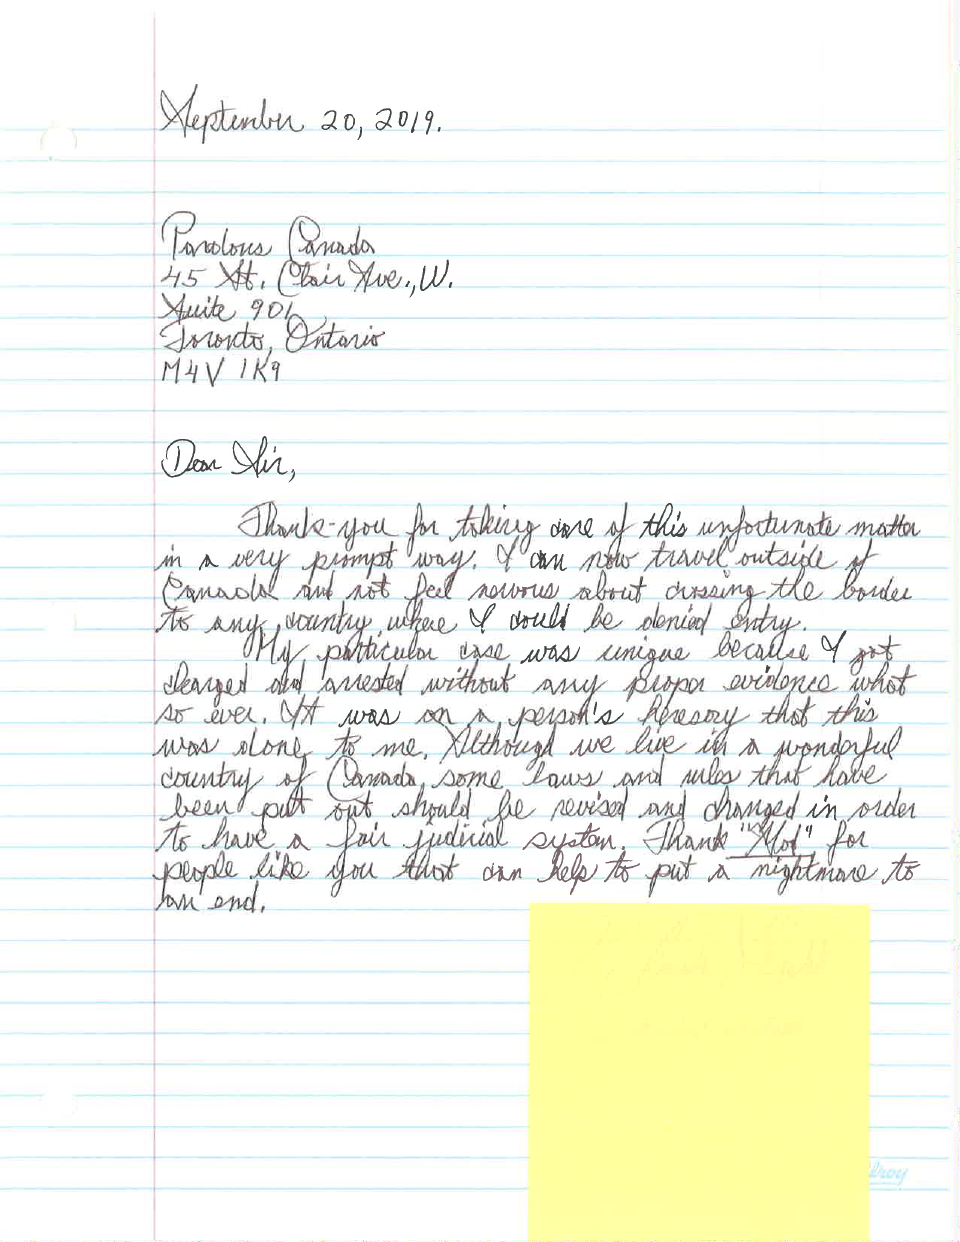 September 20, 2019.
Pardons Canada
45 St. Clair Ave., W.
Suite 901
Toronto, Ontario
M4V 1K9
Dear Sir,
Thank-you for taking care of this unfortunate matter
in a very prompt way. I can now travel outside of
Canada and not feel nervous about crossing the border
to any country where I could be denied entry.
My particular case was unique because I got
charged and arrested without any proper evidence what
so ever. It was on a person's heresory that this
was done to me. Although we live in a wonderful
country of Canada some laws and rules that have
been put out should be revised and changed in order
to have a fair judicial system. Thank "God" for
people like you that can help to put a nightmare to
an end.